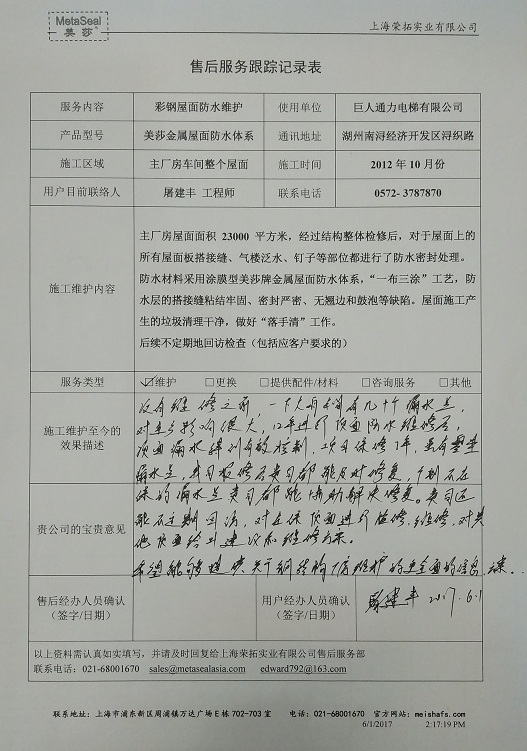 MetaSeal
美莎
上海荣拓实业有限公司
售后服务跟踪记录表
服务内容 彩钢屋面防水维护 使用单位 巨人通力电梯有限公司
产品型号 美莎金属屋面防水体系 通讯地址 湖州南浔经济开发区浔织路
施工区域 主厂房车间整个屋面 施工时间 2012 年 10 月份
用户目前联络人 屠建丰 工程师 联系电话 0572- 3787870
施工维护内容
主厂房屋面面积 23000 平方米，经过结构整体检修后，对于屋面上的
所有屋面板搭接缝、气楼泛水、钉子等部位都进行了防水密封处理。
防水材料采用涂膜型美莎牌金属屋面防水体系，“一布三涂”工艺，防
水层的搭接缝粘结牢固、密封严密、无翘边和鼓泡等缺陷。屋面施工产
生的垃圾清理干净，做好“落手清”工作。
后续不定期地回访检查（包括应客户要求的）
服务类型 ☑维护 □更换 □提供配件/材料 □咨询服务 □其他
施工维护至今的
效果描述
没有维修之前，一下大雨就有几十个漏水点，
对生产影响很大，12年进行顶面防水维修后，
顶面漏水得到有效控制，
漏水点，贵司
保的漏水点贵司都能
能不定期回访，对在保顶面进行检修、维修，对其
他顶面给出建议和维修方案。
希望能够提供关于钢结构厂房维护的更全面的信息
贵公司的宝贵意见
售后经办人员确认
（签字/日期）
用户经办人员确认
（签字/日期）
屠建丰 2017.6.1
以上资料需认真如实填写，并请及时回复给上海荣拓实业有限公司售后服务部
联系电话：021-68001670 sales@metasealasia.com edward792@163.com
联系地址：上海市浦东新区周浦镇万达广场 E 栋 702-703 室 电话：021-68001670 官方网站：meishafs.com
6/1/2017 2:17:19 PM